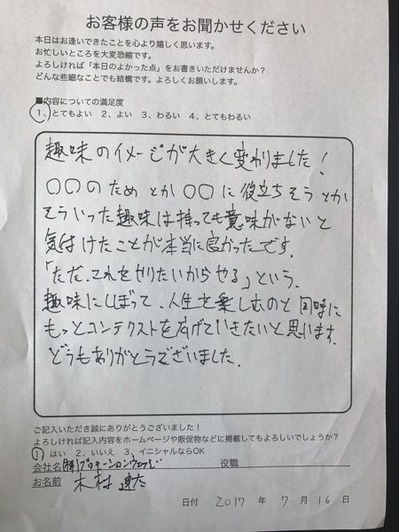 お客様の声をお聞かせください
本日はお逢いできたことを心より嬉しく思います。
お忙しいところを大変恐縮です。
よろしければ「本日のよかった点」をお書きいただけませんか?
どんな些細なことでも結構です。よろしくお願いします。
■内容についての満足度
1、とてもよい 2、よい 3、わるい 4、とてもわるい
趣味のイメージが大きく変わりました!
○○のためとか○○に役立ちそうとか
そういった趣味は持っても意味がないと
気付けたことが本当に良かったです.
「ただ、それをやりたいからやる」という、
趣味にしぼって、人生を楽しむのと同時に
もっとコンテクストを広げていきたいと思います.
どうもありがとうございました.
ご記入いただき誠にありがとうございました!
よろしければ記入内容をホームページや販促物などに掲載してもよろしいでしょうか?
1、はい 2、いいえ 3、イニシャルならOK
会社名 役職
お名前 木村
日付 2017 年 7 月 16 日